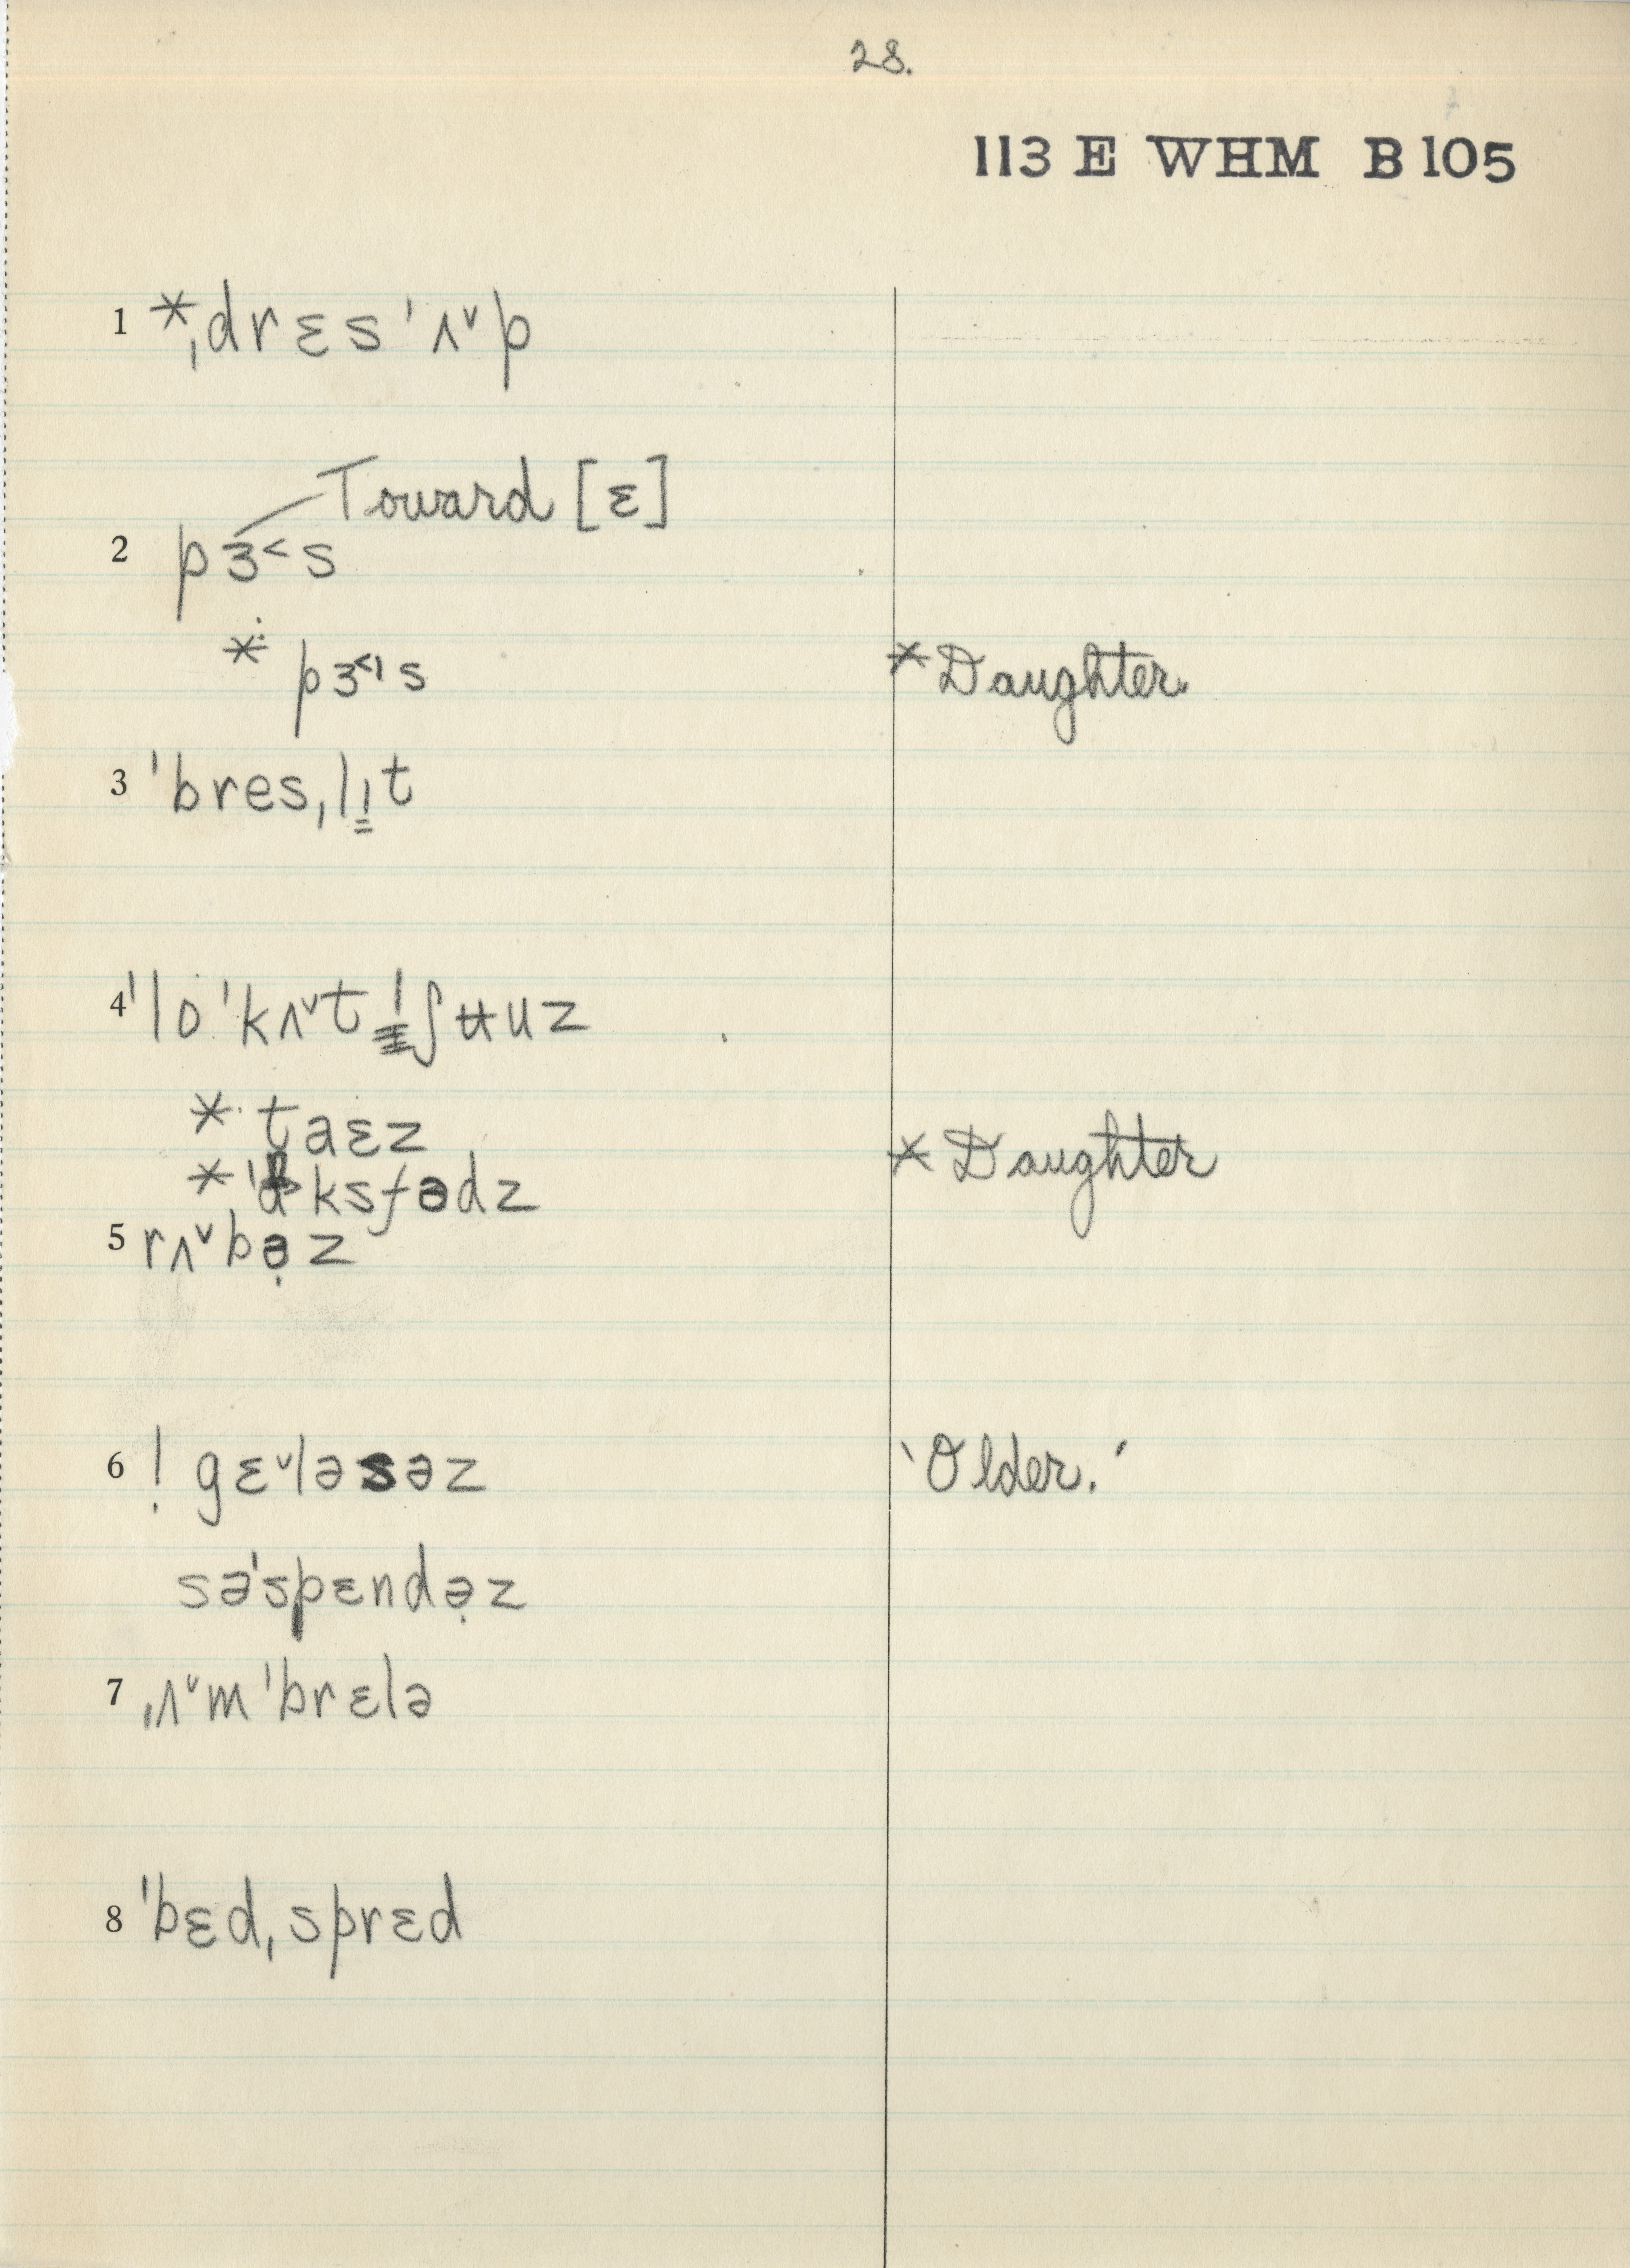 28.
113 E WHM B 105
1 *ˌdrɛs ˈʌ˅p
Toward [ɛ]
2 pɜ˂s
* pɜ˂ˈs *Daughter.
3 ˈbresˌlı̳t
4 ˈloˈkʌ˅t ʃʉuz
* taɛz
*Daughter
* ksfədz
5 rʌ˅bə̣z
6 ! gɛ˅ləsəz ‘Older.’
səˈspɛndə̣z
7 ˌʌ˅mˈbrɛlə
8 ˈbɛdˌsprɛd